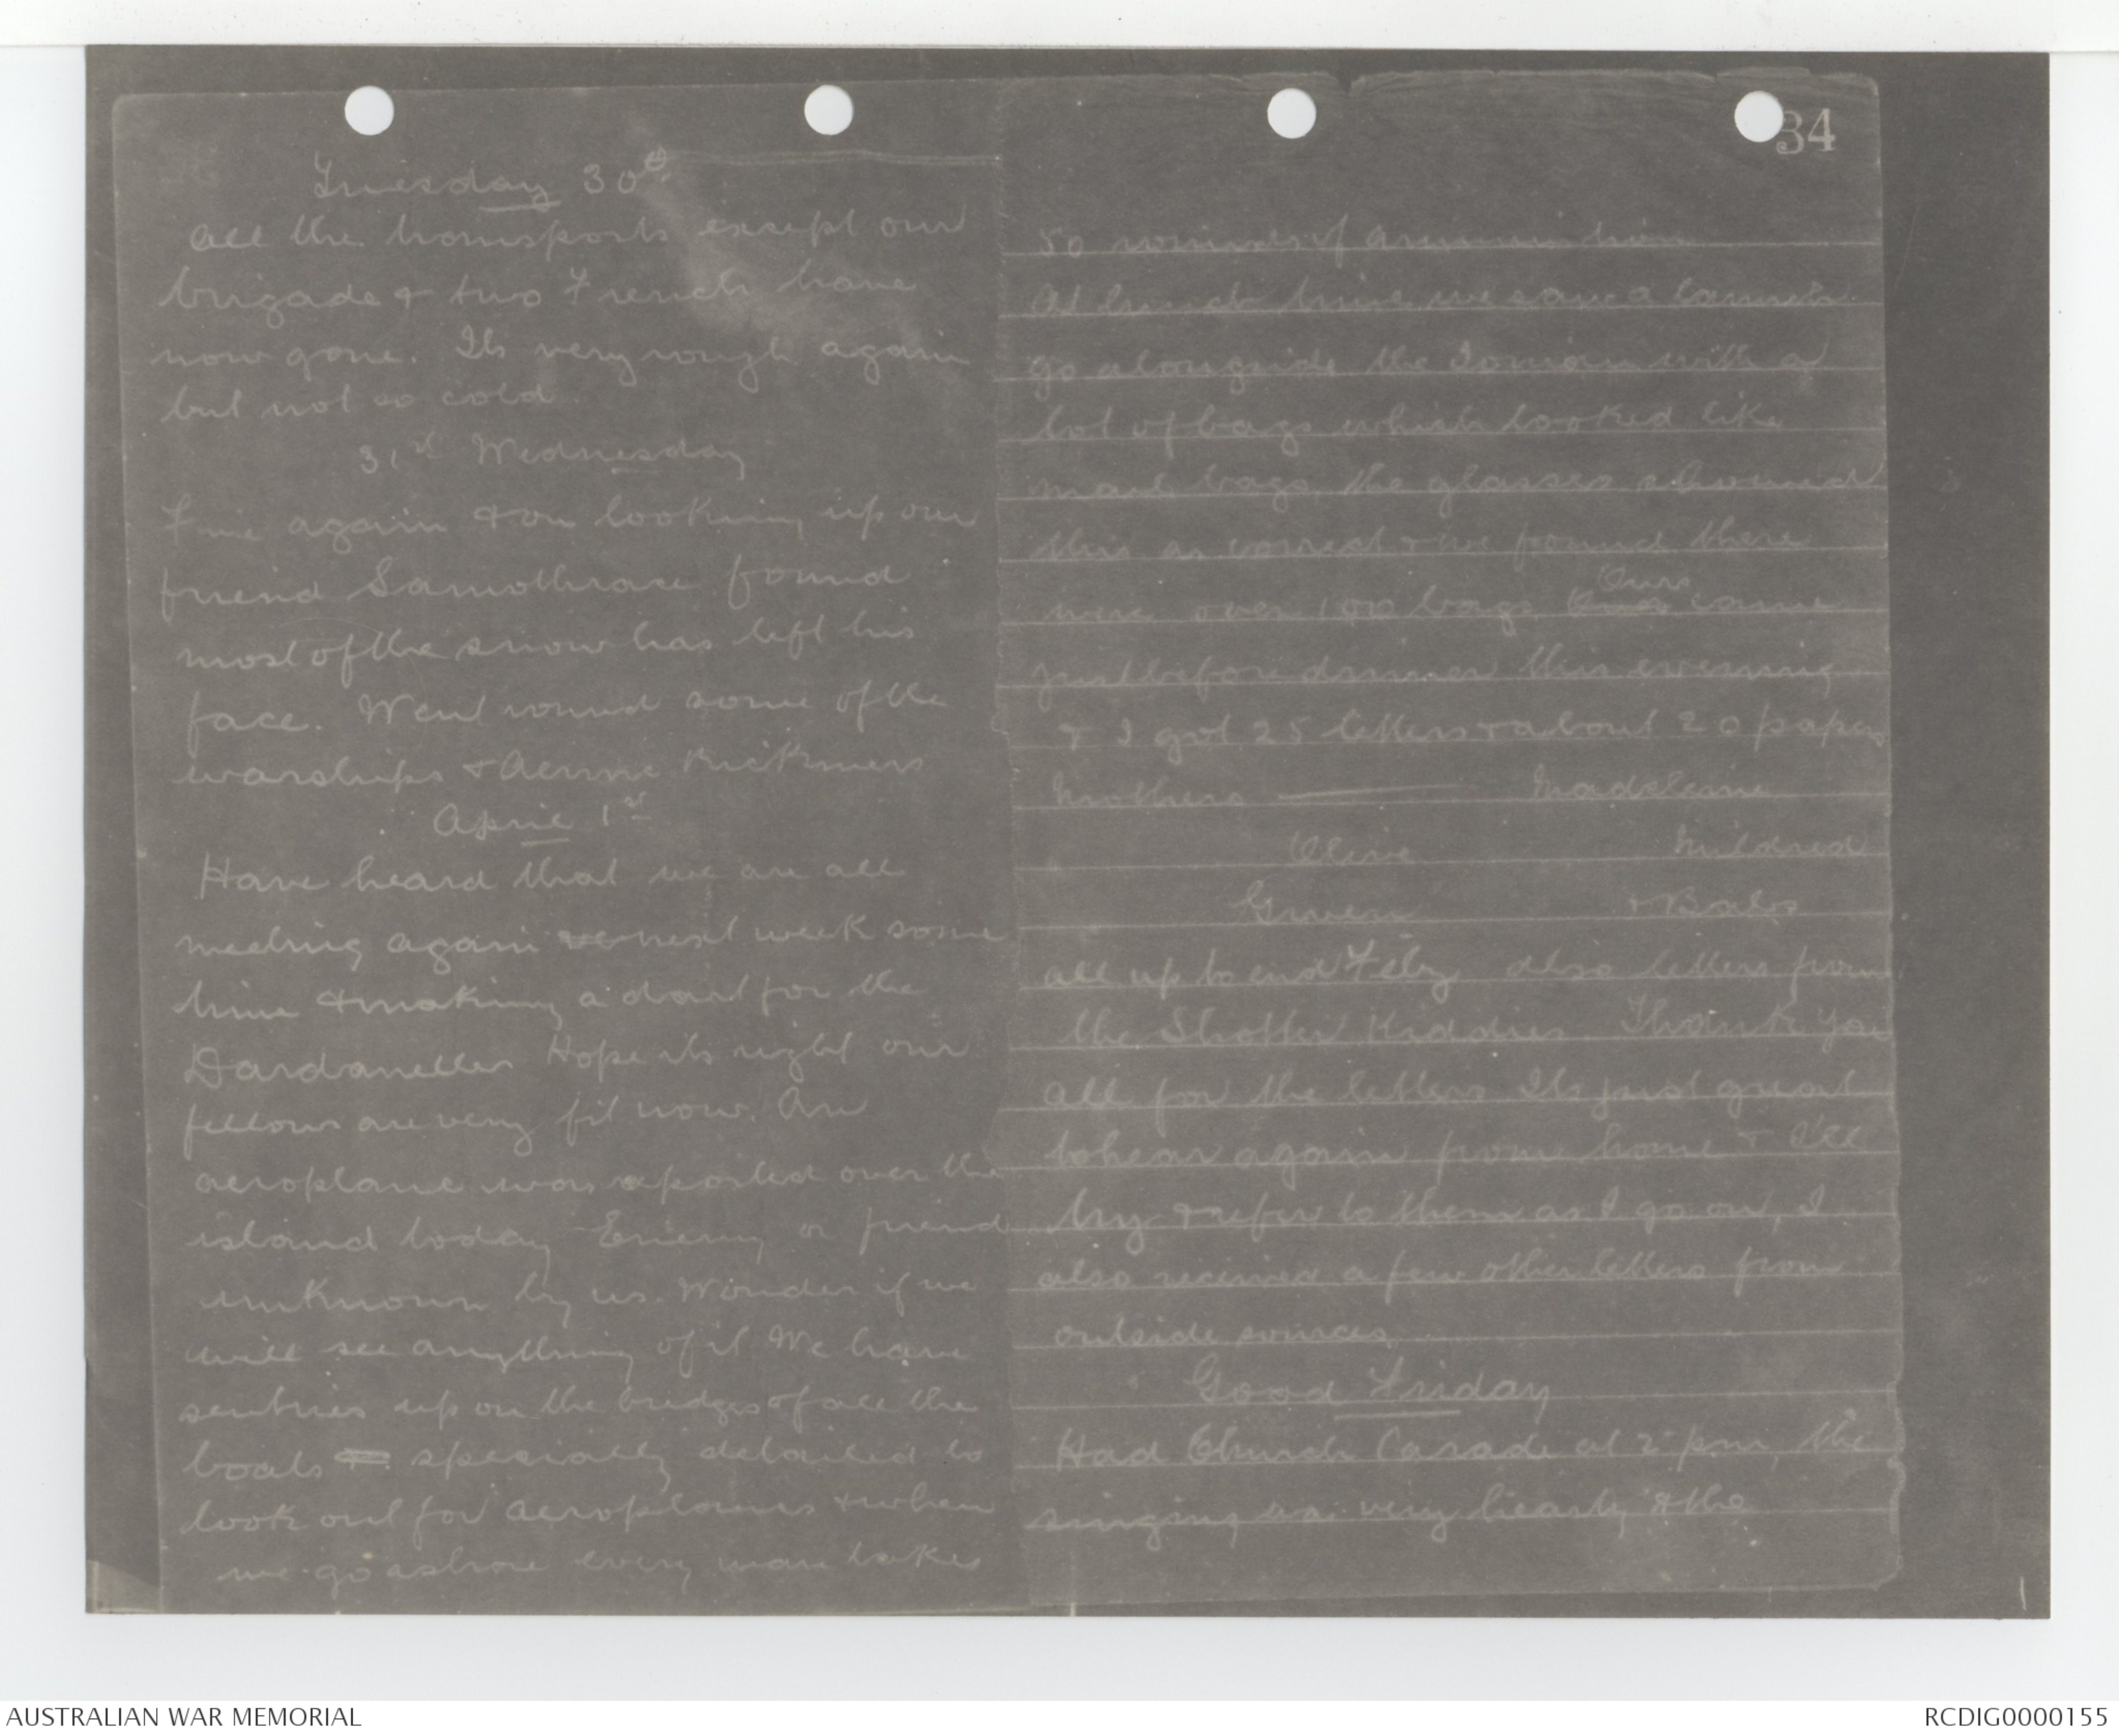 Tuesday 30th
All the transports except our
brigade & two French have
now gone. Its very rough again
but not so cold.
31st Wednesday
Fine again & on looking up our
friend Samothrace found
most of the snow has left his
face. Went round some of the
warships & Aenne Rickmers
April 1st
Have heard that we are all
meeting again next week some
time & making a dart for the
Dardanelles Hope its right our
fellows are very fit now. An
aeroplane was reported over the
island today Enemy or friend
unknown by us. Wonder if we
will see anything of it We have
sentries up on the bridges of all the
boats specially detailed to
look out for aeroplanes & when
we go ashore every man takes
34
50 rounds of ammunition
At lunch time we saw a
go alongside the Ionian with a
lot of bags which looked like
mail bags, the glasses showed
this as correct & we found there
were over 100 bags Ours came
just before dinner this evening
& I got 25 letters & about 20 papers
Mothers Madeleine
Olive Mildred
Gwen & Babs
all up to end Feby also letters from
the Kiddies Thank you
all for the letters Its just great
to hear again from home & I'll
try & refer to them as I go on, I
also received a few other letters from
outside sources
Good Friday
Had Church Parade at 2 pm, the
singing was very hearty & the
AUSTRALIAN WAR MEMORIAL
RCDIG0000155